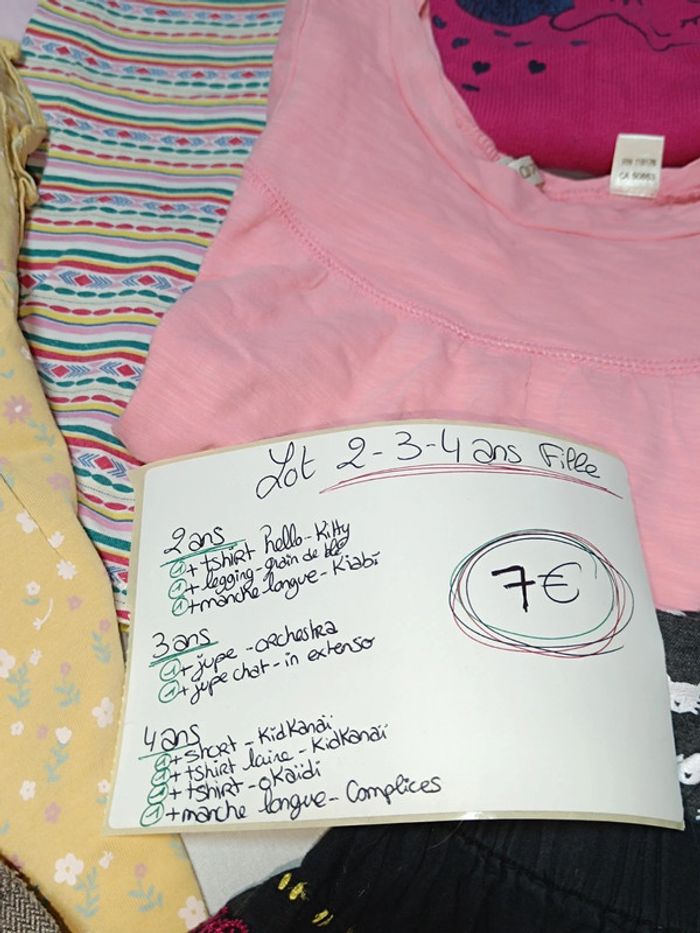 RN 119176
CA 50663
Lot 2-3-4 ans Fille
2 ans
1 + tshirt hello-Kitty
1 + legging-grain de blé
1 + manche longue-Kiabi
7€
3 ans
1 + jupe-orchestra
1 + jupe chat-in extenso
4 ans
1 + short-Kidkanaï
1 + tshirt laine-Kidkanaï
1 + tshirt-okaïdi
1 + manche longue-Complices